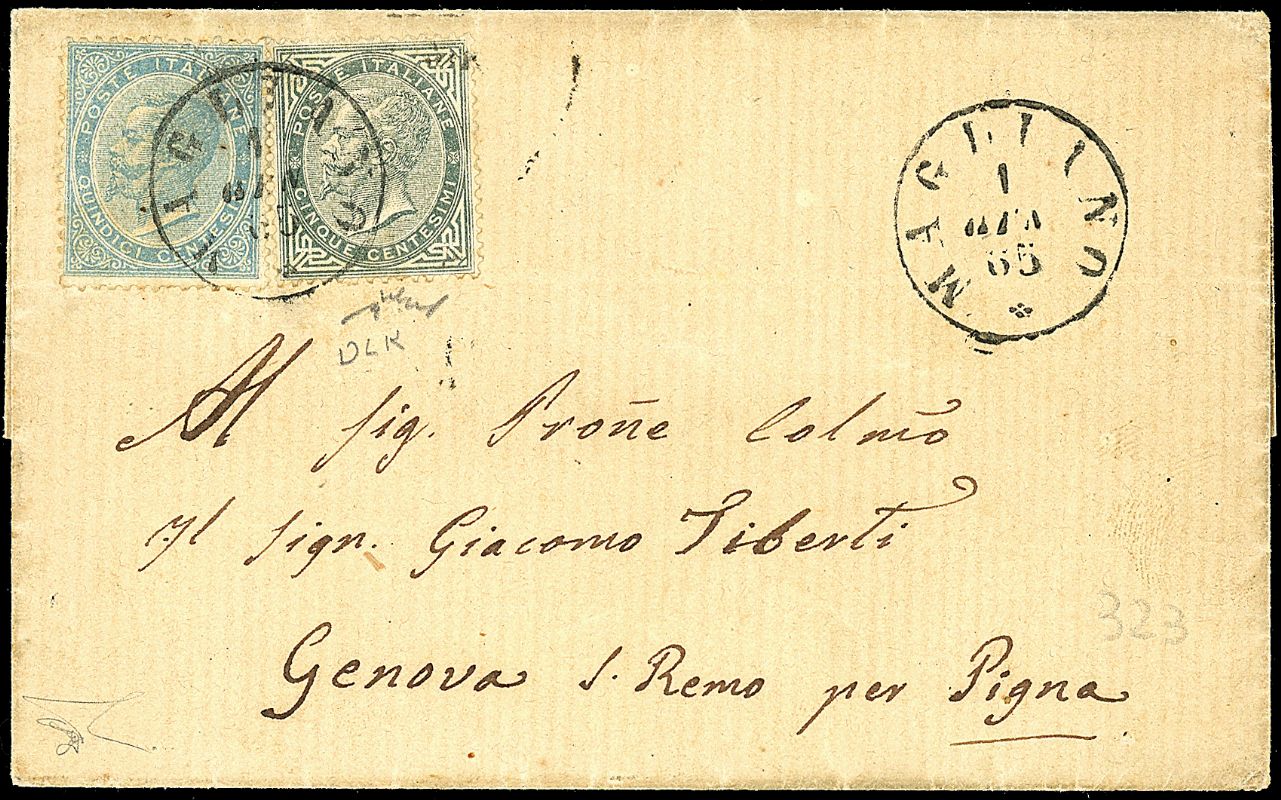 POSTE ITALIANE
QUINDICI CENTESIMI
POSTE ITALIANE
CINQUE CENTESIMI
MAGLIANO
1
65
DLK
Al sig. Proñe Colmo
Il Sign. Giacomo Tiberti
Genova S. Remo per Pigna
323